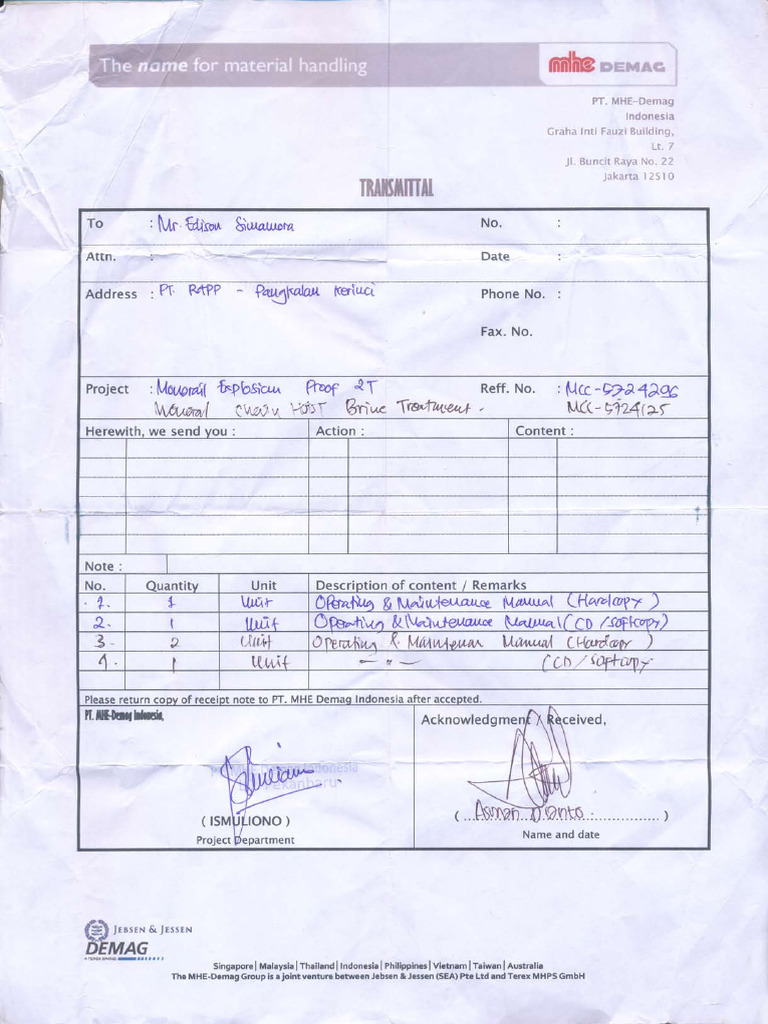 The name for material handling
mhe DEMAG
PT. MHE-Demag
Indonesia
Graha Inti Fauzi Building,
Lt. 7
Jl. Buncit Raya No. 22
Jakarta 12510
TRANSMITTAL
To : Mr. Edison Simamora No. :
Attn. : Date :
Address : PT. RAPP - Pangkalan Kerinci Phone No. :
Fax. No.
Project : Monorail Explosion Proof 2T Reff. No. : MCC-5724296
Monorail Chain Hoist Brine Treatment. MCC-5724125
Herewith, we send you : Action : Content :
Note :
No. Quantity Unit Description of content / Remarks
1. Unit Operating & Maintenance Manual (Hardcopy)
2. 1 Unit Operating & Maintenance Manual (CD/softcopy)
3. 2 Unit Operating & Maintenan Manual (Hardcopy)
4. 1 Unit — " — (CD/softcopy
Please return copy of receipt note to PT. MHE Demag Indonesia after accepted.
PT. MHE-Demag Indonesia, Acknowledgment / Received,
MHE-Demag Indonesia
Pekanbaru
( ISMULIONO ) (... Asman D.........)
Project Department Name and date
JEBSEN & JESSEN
DEMAG
Singapore| Malaysia| Thailand| Indonesia| Philippines| Vietnam| Taiwan| Australia
The MHE-Demag Group is a joint venture between Jebsen & Jessen (SEA) Pte Ltd and Terex MHPS GmbH